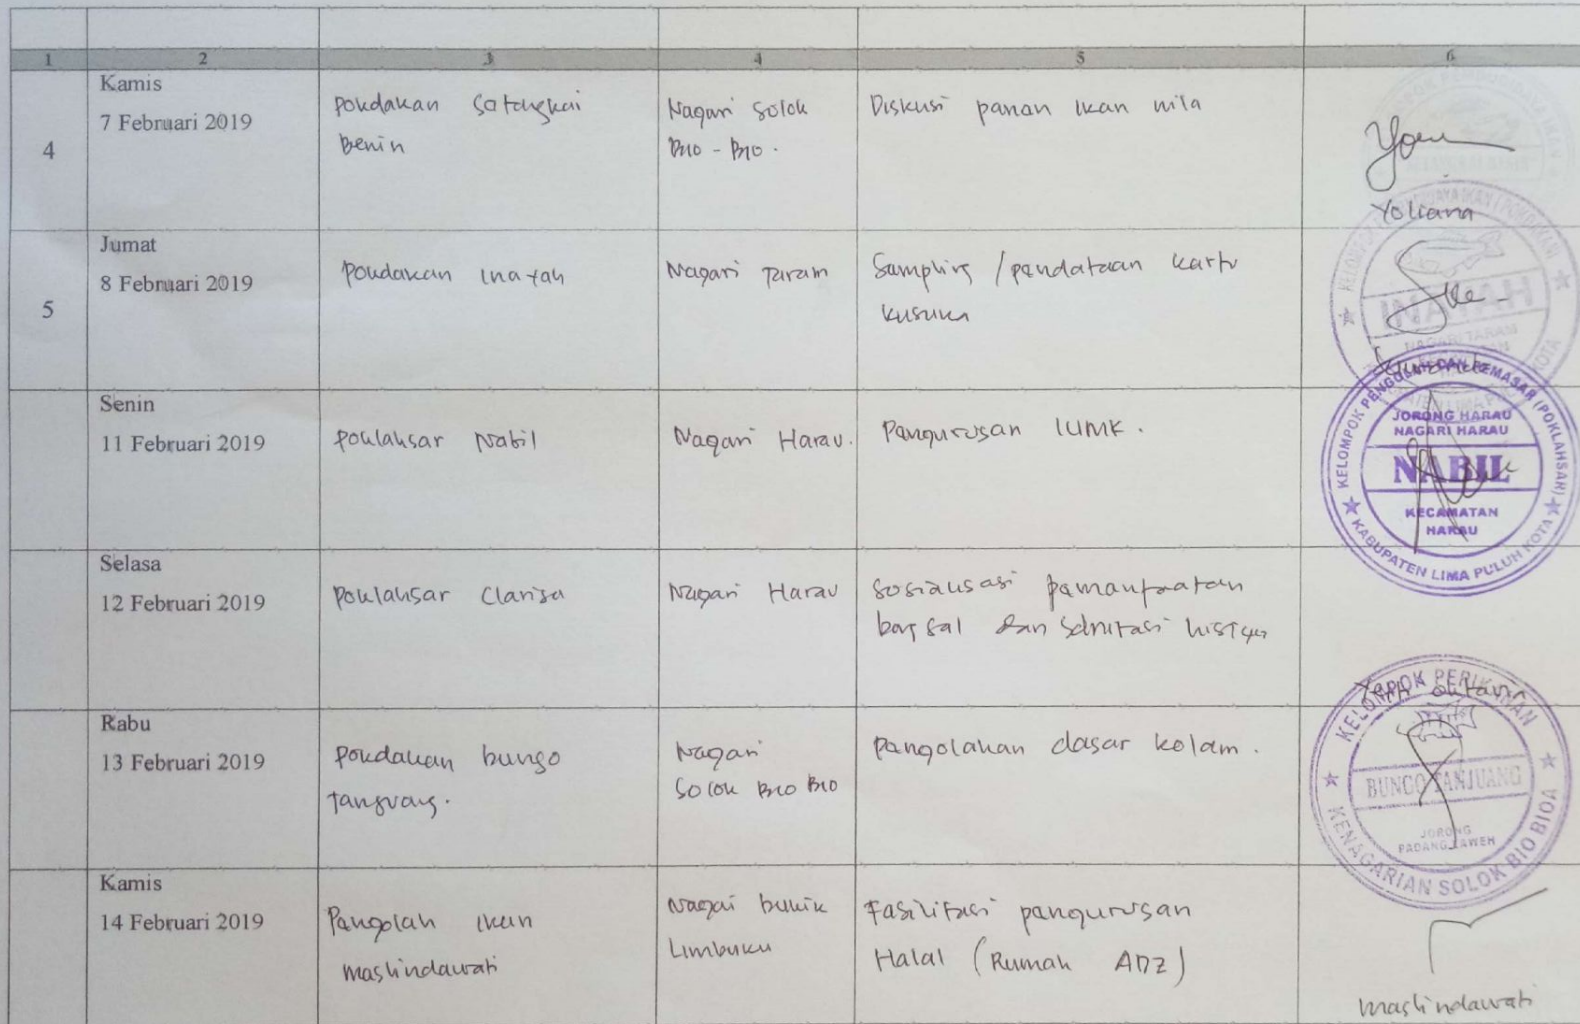 1 2 3 4 5 6
Kamis
7 Februari 2019
4
pokdakan satangkai
benin
Nagari Solok
Bio - Bio.
Diskusi panan ikan nila
Yoliana
Jumat
8 Februari 2019
5
pokdakan inayah
Nagari Taram
Sampling / pendataan kartu
kusuka
INAYAH
NAGARI TARAM
Senin
11 Februari 2019
poklahsar Nabil
Nagari Harau.
Pengurusan IUMK.
KELOMPOK PENGOLAH DAN PEMASAR (POKLAHSAR)
JORONG HARAU
NAGARI HARAU
NABIL
KECAMATAN
HARAU
KABUPATEN LIMA PULUH KOTA
Selasa
12 Februari 2019
poklahsar Clarisa
Nagari Harau
Sosialisasi pemanfaatan
bangsal dan sanitasi
Rabu
13 Februari 2019
pokdakan bungo
tanjuang.
Nagari
Solok Bio Bio
pengolahan dasar kolam.
KELOMPOK PERIKANAN
BUNGO TANJUANG
JORONG
PADANG LAWEH
KENAGARIAN SOLOK BIO BIOA
Kamis
14 Februari 2019
Pengolah ikan
maslindawati
Nagari bukik
Limbuku
Fasilitasi pengurusan
Halal (Rumah ADZ)
maslindawati